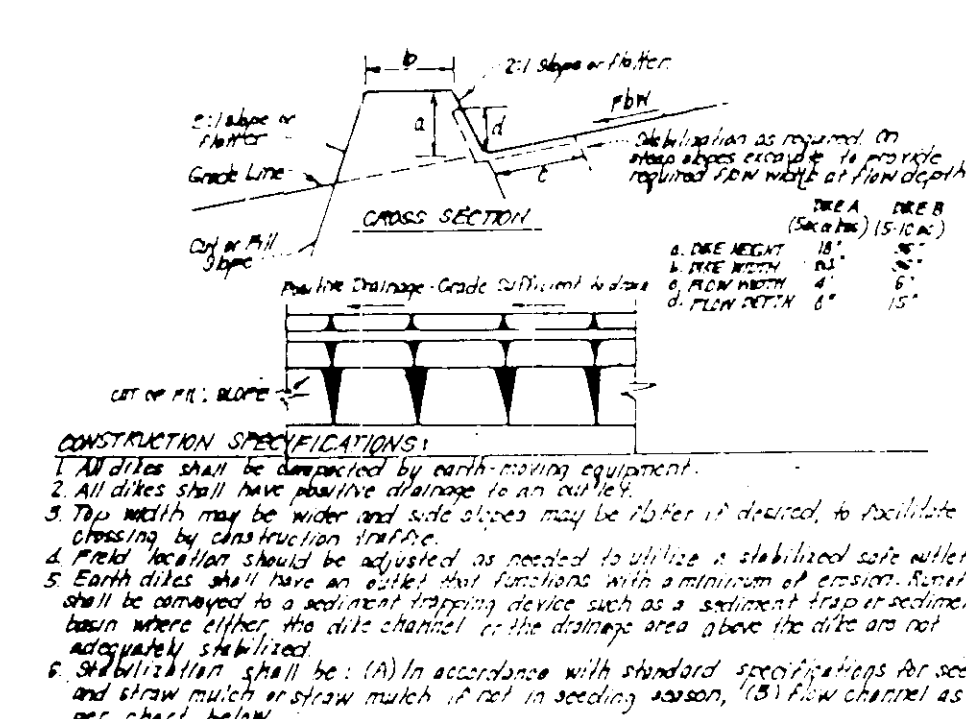 b
2:1 slope or flatter.
Flow
2:1 slope or
flatter
a
d
Stabilization as required. On
steep slopes excavate to provide
required flow width at flow depth
Grade Line
c
CROSS SECTION
Cut or Fill
Slope
DIKE A DIKE B
(5-10 ac)
a. DIKE HEIGHT 18" 36"
b. DIKE WIDTH 36"
c. FLOW WIDTH 4' 6'
d. FLOW DEPTH 8" 15"
Positive Drainage-Grade Sufficient to drain
CUT OR FILL SLOPE
CONSTRUCTION SPECIFICATIONS:
1. All dikes shall be compacted by earth-moving equipment.
2. All dikes shall have positive drainage to an outlet.
3. Top width may be wider and side slopes may be flatter if desired, to facilitate
crossing by construction traffic.
4. Field location should be adjusted as needed to utilize a stabilized safe outlet
5. Earth dikes shall have an outlet that functions with a minimum of erosion. Runof
shall be conveyed to a sediment trapping device such as a sediment trap or sedimen
basin where either the dike channel or the drainage area above the dike are not
adequately stabilized.
6. Stabilization shall be: (A) In accordance with standard specifications for see
and straw mulch or straw mulch if not in seeding season, (B) flow channel as
per chart below